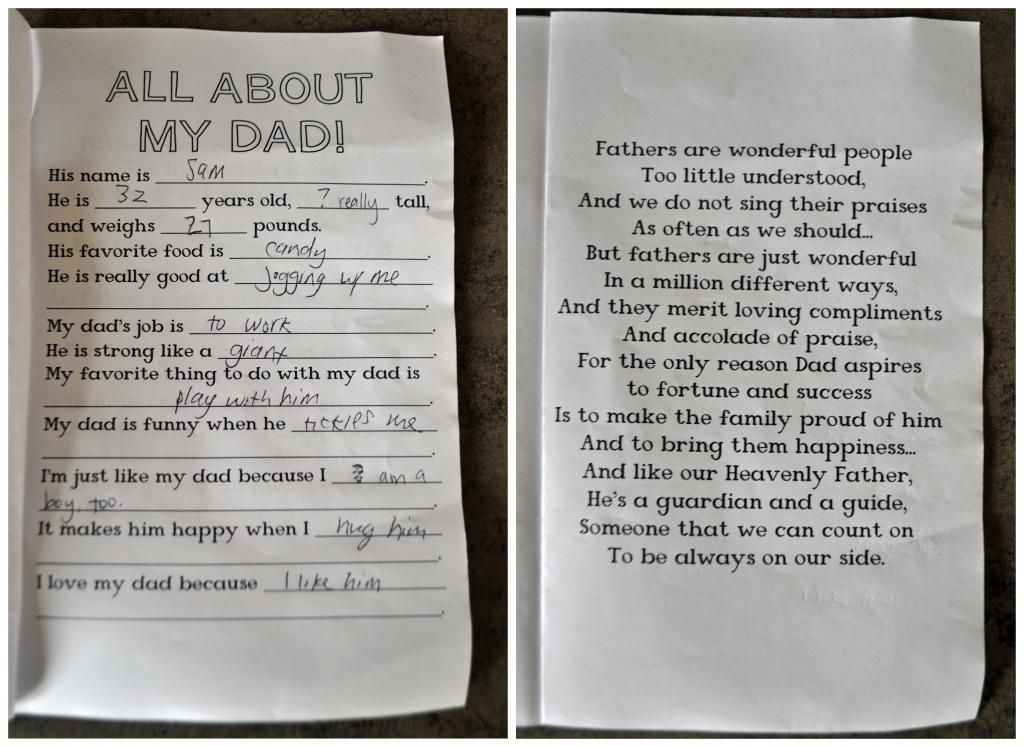 ALL ABOUT
MY DAD!
His name is Sam.
He is 32 years old, ? really tall,
and weighs 27 pounds.
His favorite food is candy.
He is really good at jogging w/ me
.
My dad's job is to work.
He is strong like a giant.
My favorite thing to do with my dad is
play with him.
My dad is funny when he tickles me
.
I'm just like my dad because I am a
boy, too.
It makes him happy when I hug him
.
I love my dad because I like him
.
Fathers are wonderful people
Too little understood,
And we do not sing their praises
As often as we should...
But fathers are just wonderful
In a million different ways,
And they merit loving compliments
And accolade of praise,
For the only reason Dad aspires
to fortune and success
Is to make the family proud of him
And to bring them happiness...
And like our Heavenly Father,
He's a guardian and a guide,
Someone that we can count on
To be always on our side.